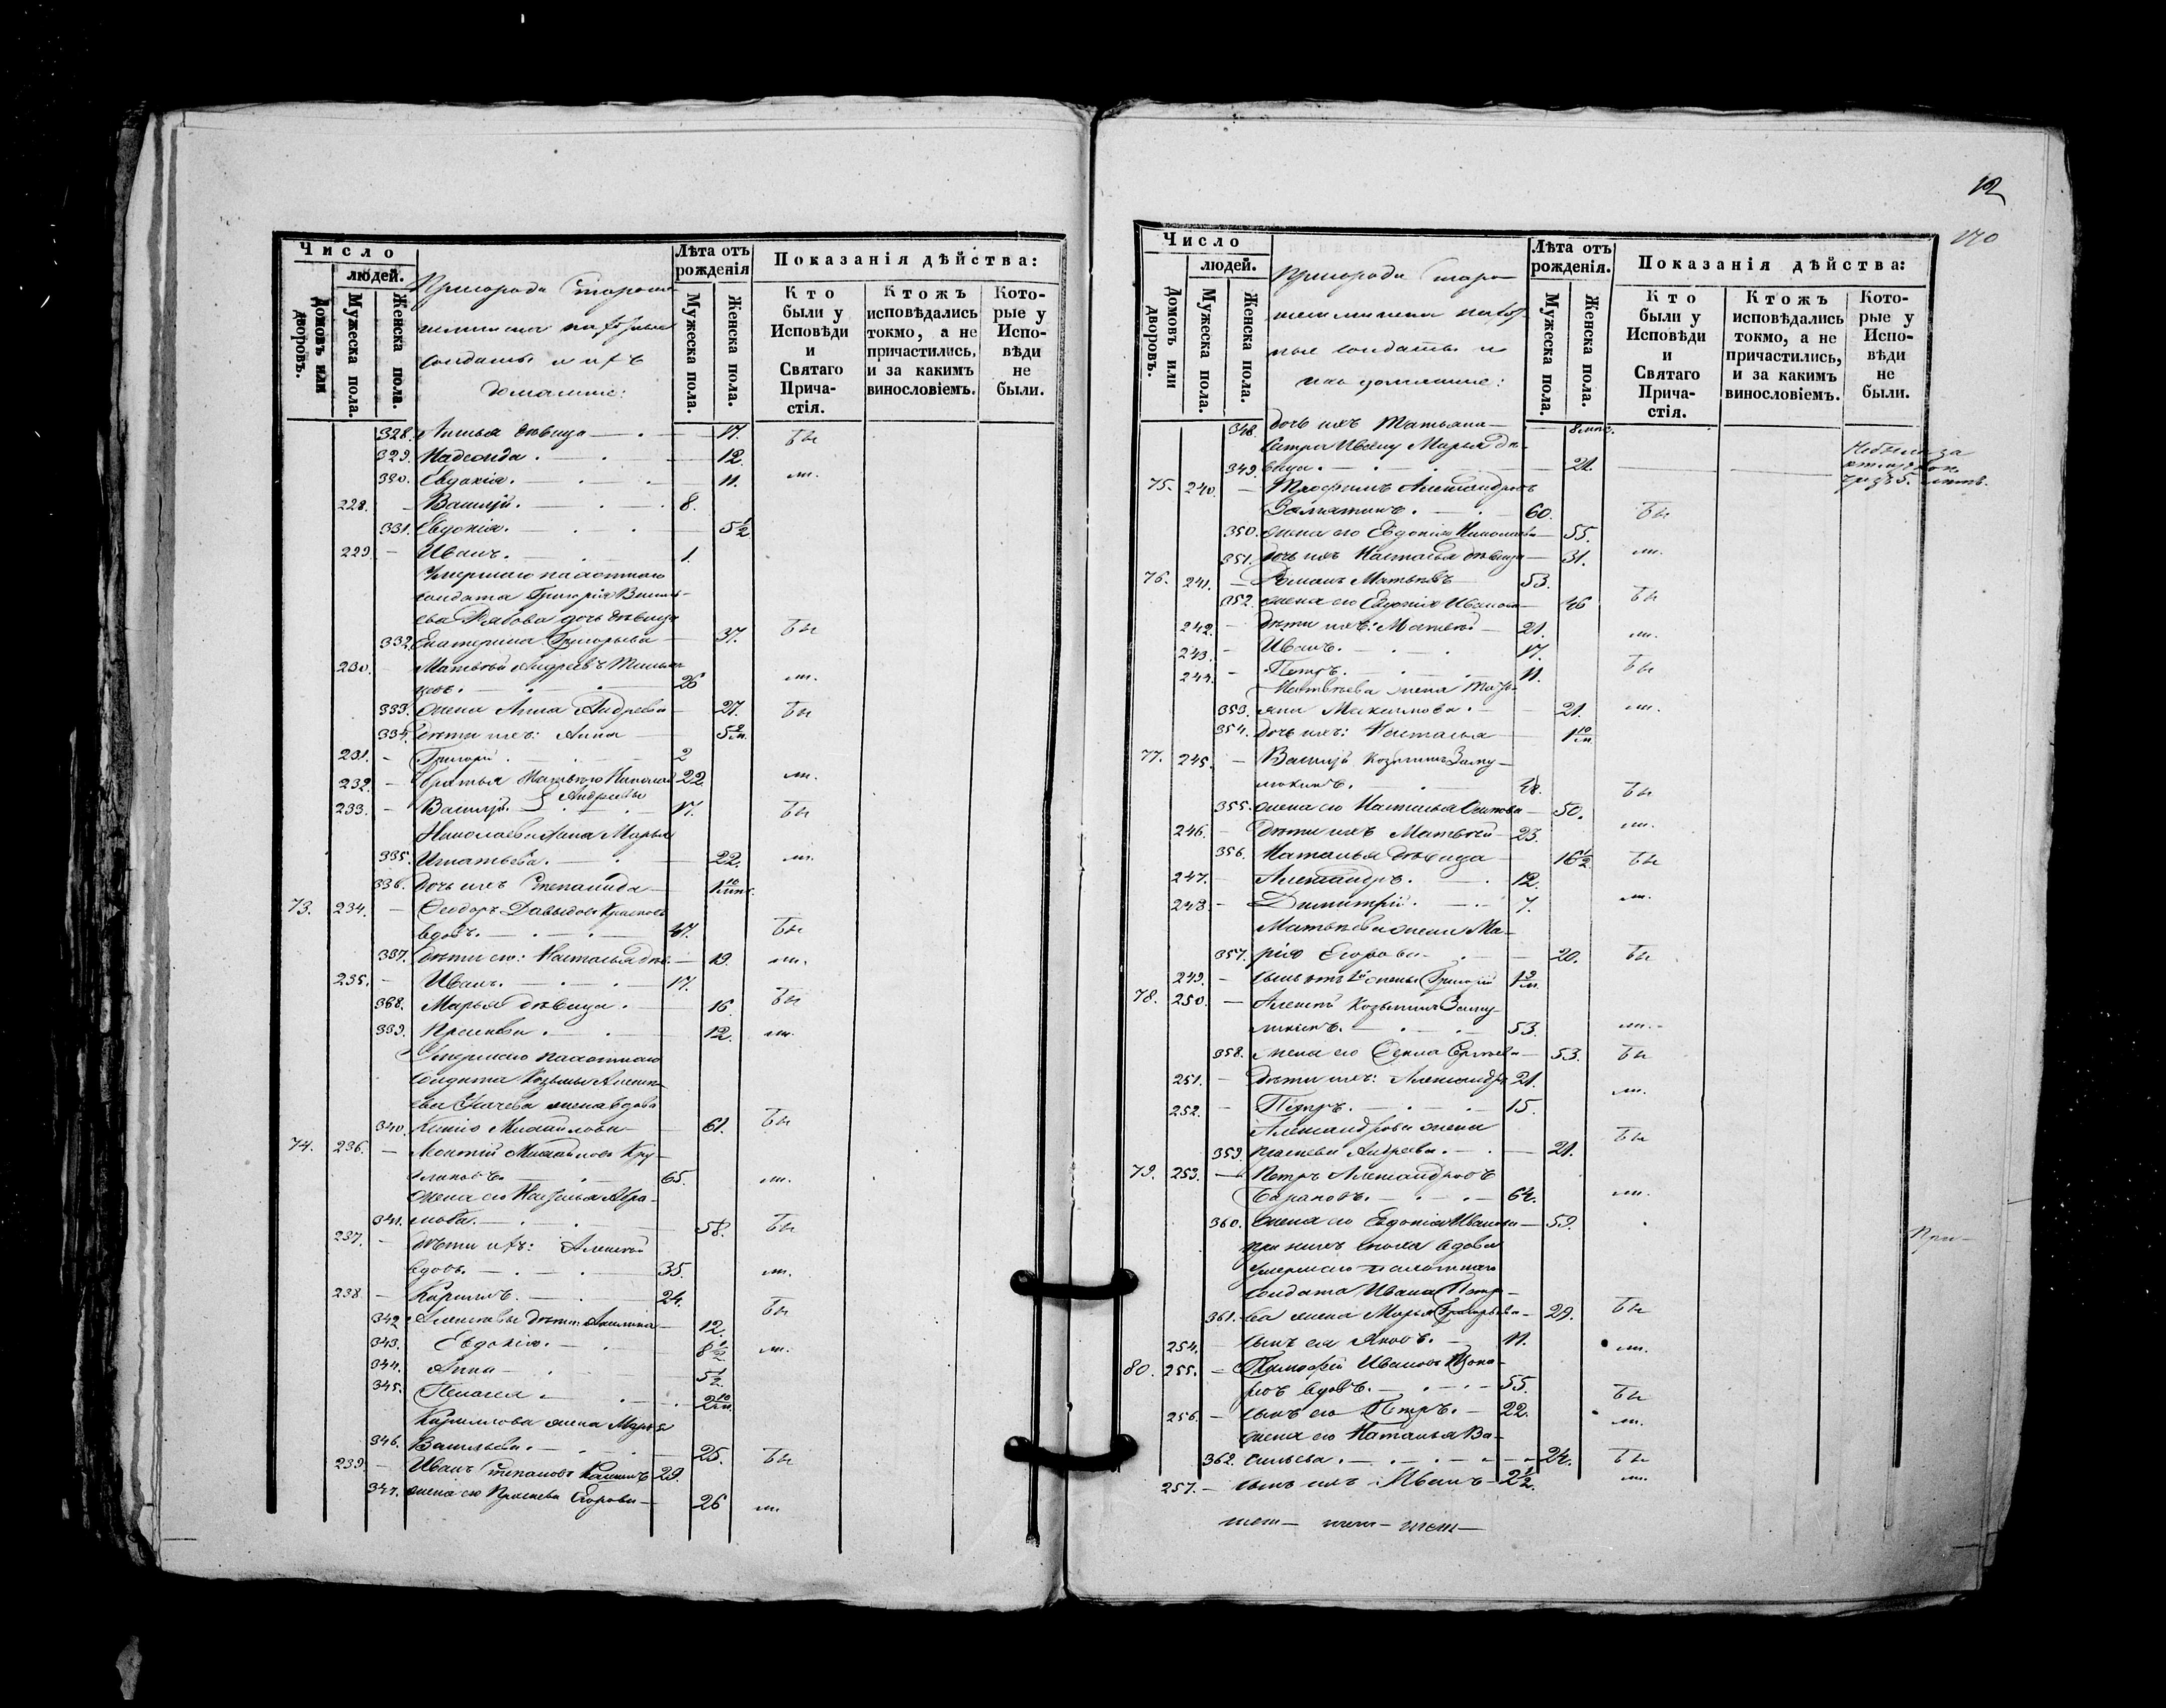 Число
людей.
Домовъ или дворовъ.
Мужеска пола.
Женска пола.
Пригорода Старо-
шешминска пахотные
солдаты и ихъ
домашніе:
Лѣта отъ рожденія
Мужеска пола.
Женска пола.
Показанія дѣйства:
Кто были у Исповѣди и Святаго Причастія.
Ктожъ исповѣдались токмо, а не причастились, и за какимъ винословіемъ.
Которые у Исповѣди не были.
328. Анна дѣвица 17. бы
329. Надежда. 12.
330. Евдокія. 11. ли.
228. Василій. 8.
331. Евдокія. 5 1/2
229. Иванъ. 1.
Умершаго пахотнаго
солдата Григорія Василь-
ева Рябова дочь дѣвица
332. Екатерина Григорьева 37. бы
230. Матвѣй Андреевъ
26 ли.
333. Жена Анна Андреева 27. бы
334. Дѣти ихъ: Анна 5
231. Григорій. 2
232. Братья Матвѣя Николай 22. ли.
233. Василій. Андреевы 17. бы
Николаева жена Марья
335. Игнатьева. 22. ли.
336. дочь ихъ Степанида 1 10/мѣс.
73. 234. Ѳеодоръ Давыдовъ
вдовъ. 47. бы
337. Дѣти его: Настасья дѣв. 19. ли.
235. Иванъ. 17.
338. Марья дѣвица. 16. бы
339. Прасковья. 12. ли.
Умершаго пахотнаго
солдата Козьмы Алексѣ-
ева жена вдова
340. Ксенія Михайлова 61. бы
74. 236. Леонтій Михайловъ Кру-
гликовъ. 65. ли.
Жена его Наталья Абра-
341. мова. 58. бы
237. Дѣти ихъ: Алексѣй
вдовъ. 35. ли.
238. Кирилъ. 24. бы
342. Алексѣевы дѣти: Акилина 12.
343. Евдокія. 8 1/2 ли.
344. Анна 5 1/2
345. Пелагея. 2 10/м.
Кирилова жена Марья
346. Васильева. 25. бы
239. Иванъ Степановъ 29.
347. жена его Прасковья Егорова 26 ли.
12
170
Число
людей.
Домовъ или дворовъ.
Мужеска пола.
Женска пола.
Пригорода Старо-
шешминска пахот-
ные солдаты и
ихъ домашніе:
Лѣта отъ рожденія.
Мужеска пола.
Женска пола.
Показанія дѣйства:
Кто были у Исповѣди и Святаго Причастія.
Ктожъ исповѣдались токмо, а не причастились, и за какимъ винословіемъ.
Которые у Исповѣди не были.
348. дочь ихъ Татьяна 8 мѣс.
Сестра Ивану Марья дѣ-
349. вица. 21. Не была за
75. 240. Трофимъ Александровъ
Замятинъ. 60. бы
350. жена его Евдокія Николаева 55.
351. дочь ихъ Настасья дѣвица 31. ли.
76. 241. Романъ Матвѣевъ 53.
352. жена его Евдокія Иванова 46 бы
242. дѣти ихъ: Матвѣй 21. ли.
243. Иванъ. 17.
244. Петръ. 11. бы
Матвѣева жена Тать-
353. яна Максимова. 21. ли.
354. дочь ихъ: Наталья 1 10/м.
77. 245. Василій Козьминъ Заму-
48. бы
355. жена его Настасья Осипова 50.
246. Дѣти ихъ Матвѣй 23. ли.
356. Наталья дѣвица 16 1/2 бы
247. Александръ. 12.
248. Димитрій. 7. ли.
Матвѣева жена Ма-
357. рія Егорова 20. бы
249. сынъ отъ 1й жены Григорій 1 9/м.
78. 250. Алексѣй Козьминъ Заму-
53. ли.
358. жена его Ѳекла Сергѣева 53. бы
251. дѣти ихъ: Александръ 21. ли.
252. Петръ. 15.
Александрова жена
359. Прасковья Андреева. 21. бы
79. 253. Петръ Александровъ
Барановъ. 64. ли.
360. жена его Евдокія Иванова 59.
при нихъ сноха вдова
умершаго пахотнаго
солдата Ивана Петро-
361. ва жена Марья Григорьева 29. бы
254. сынъ ея Яковъ. 11. ли.
80. 255. Тимофей Ивановъ
вдовъ. 55. бы
256. сынъ его Петръ. 22. ли.
жена его Наталья Ва-
362. сильева. 24. бы
257. сынъ ихъ Иванъ 2 1/2. ли.
При-